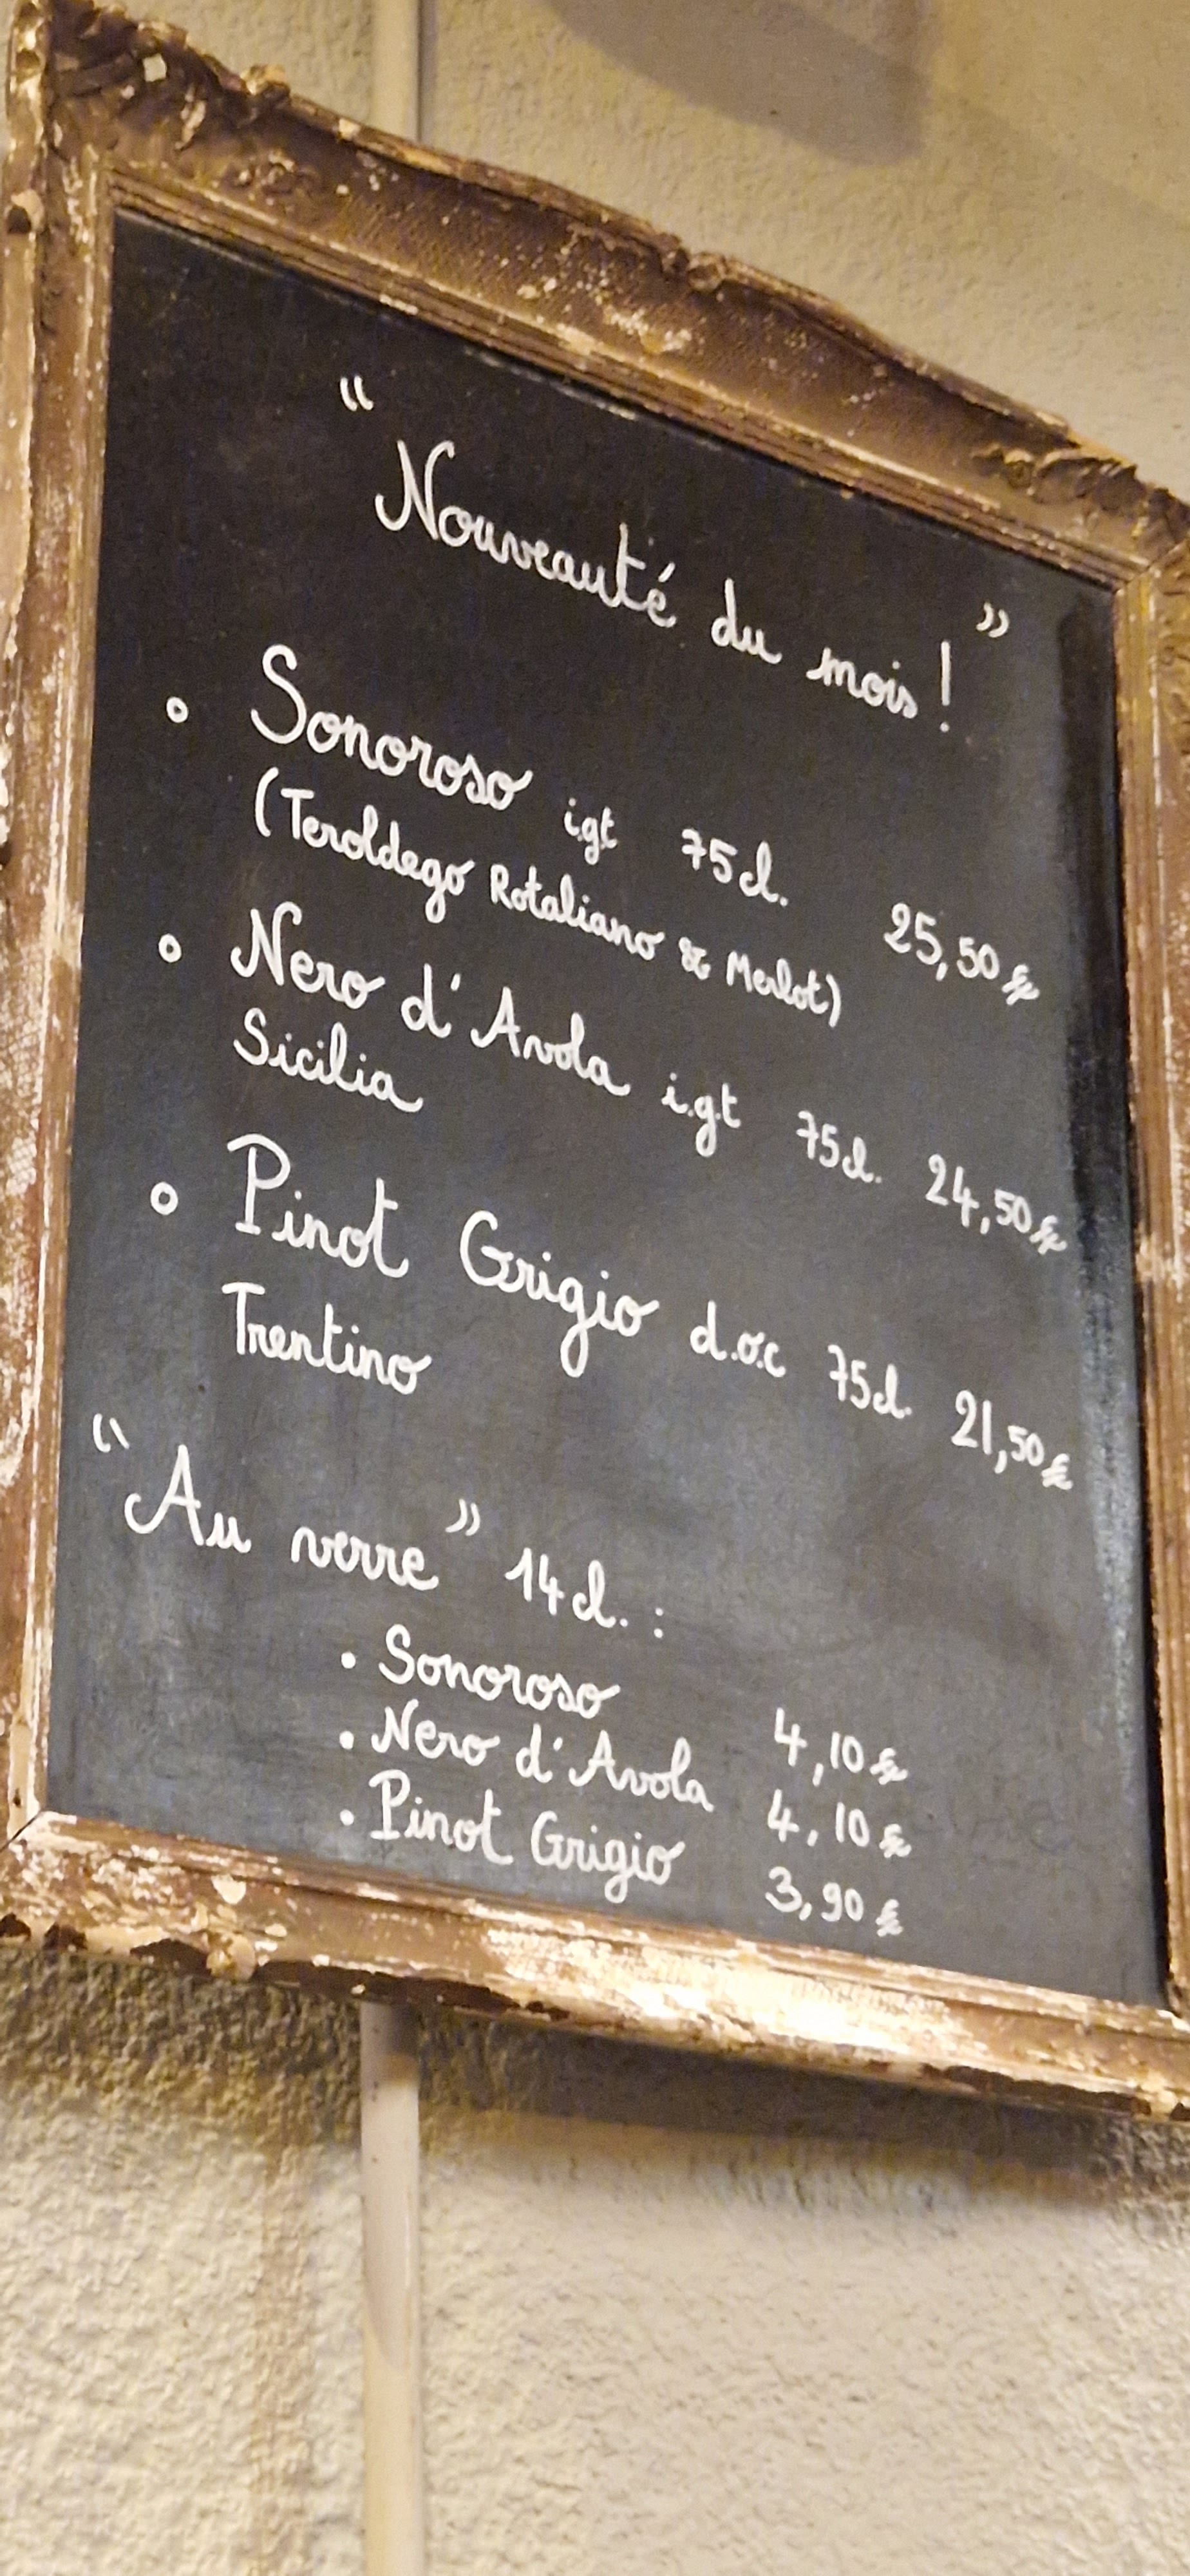 "Nouveauté du mois!"
° Sonoroso igt 75cl. 25,50€
(Teroldego Rotaliano & Merlot)
° Nero d'Avola i.g.t 75cl. 24,50€
Sicilia
° Pinot Grigio d.o.c 75cl. 21,50€
Trentino
"Au verre" 14cl. :
• Sonoroso 4,10€
• Nero d'Avola 4,10€
• Pinot Grigio 3,90€